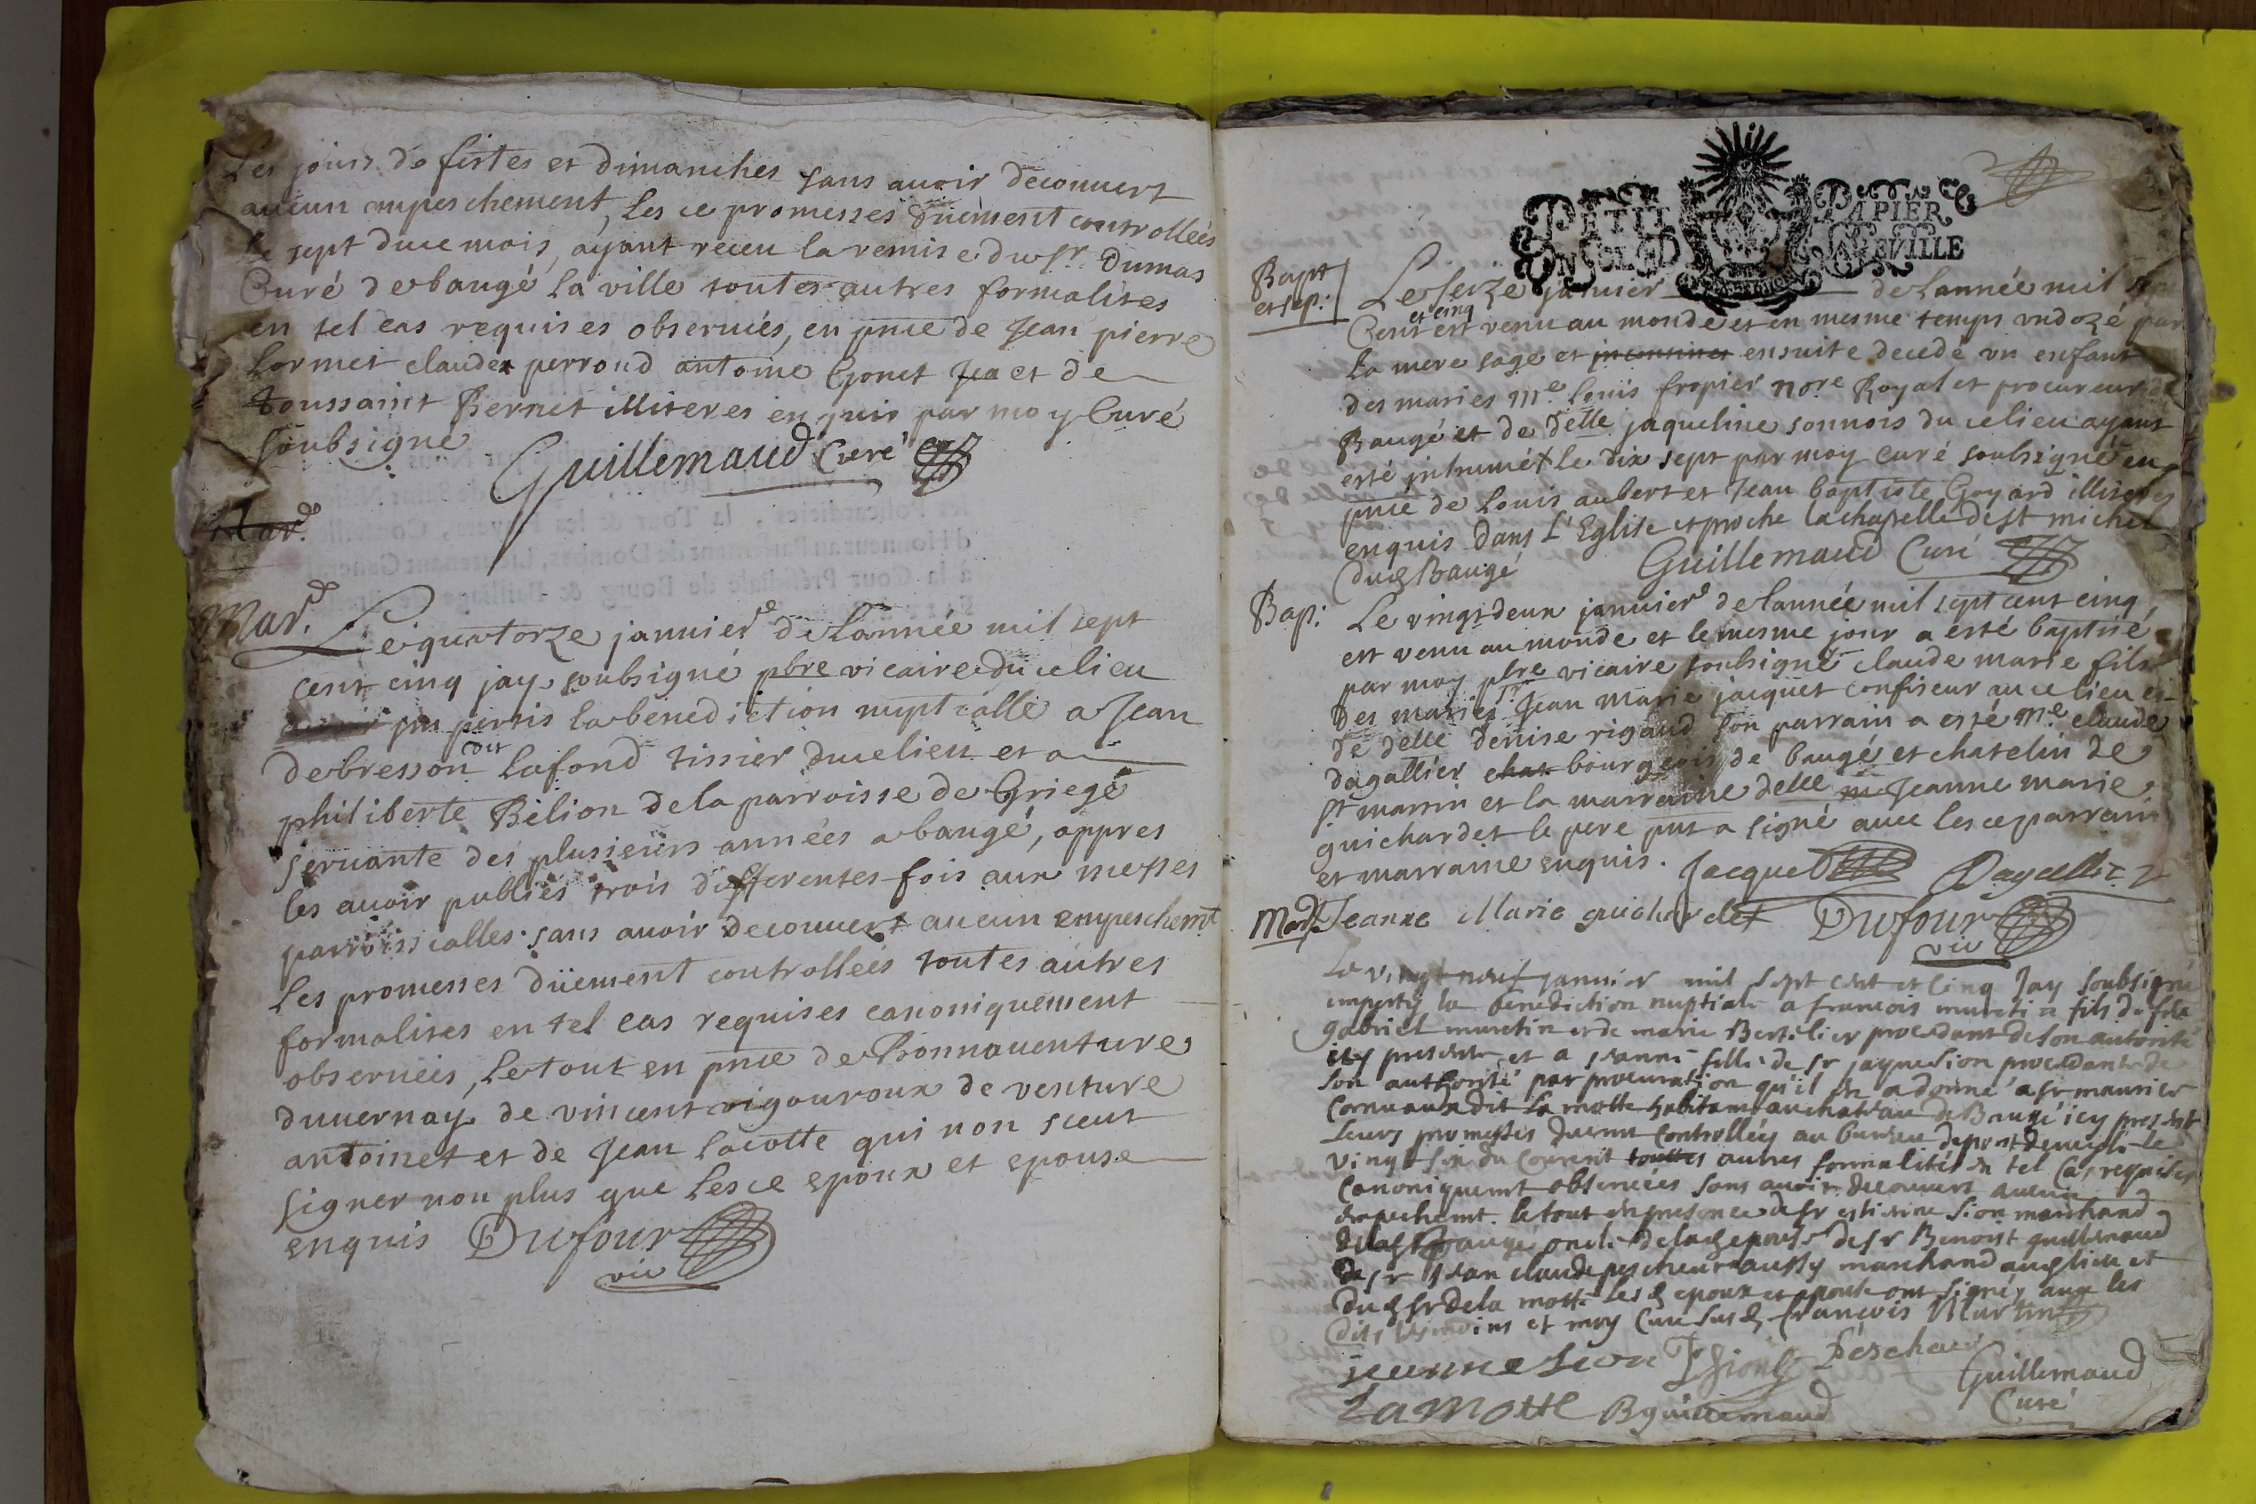 Les jours de festes et dimanches sans avoir decouuert
aucun empeschement, les ce promesses düement controllées
le sept duce mois, ayant receu la remise du sr Dumas
Curé de baugé la ville toutes autres formalites
en tel cas requises obseruées, en pnce de Jean pierre
Lormet claude perroud antoine Gonet Jea et de
toussaint Bernet illiteres enquis par moy Curé
soubsigné
Guillemaud Curé
Mar.
Mar. Le quatorze januier de lannée mil sept
cent cinq jay soubsigné pbre vicaire du ce lieu
la benediction nuptialle a Jean
debresson dit Lafond tissier duce lieu et a
philiberte Bélion de la parroisse de Griege
seruante des plusieurs années a baugé, appres
les auoir publiés trois differentes fois aux messes
parroissialles sans auoir decouuert aucun empeschemt
les promesses düement controllées toutes autres
formalites en tel cas requises canoniquement
obseruées, le tout en pnce de Bonnauenture
duuernay de vincent vigouroux de venture
antoinet et de Jean Lacotte qui non sceut
signer non plus que les ce epoux et epouse
enquis Dufour
vic
PETIT PAPIER
UN SOL LA FEUILLE
Bapt
et sep: Le seize januier de lannée mil sept
Cent et cinq est venu au monde et en mesme temps undozé par
la mere sage et ensuite decedé un enfant
des mariés Me Louis fropier nore Royal et procureur de
Baugé et de delle jaqueline sonnois du ce lieu ayant
esté inhumé le dix sept par moy curé soubsigné en
pnce de Louis aubert et Jean baptiste Goyard illiteres
enquis dans L'Eglise et proche la chapelle de st michel
dud Baugé Guillemaud Curé
Bap: Le vingt deux januier de lannée mil sept cent cinq
est venu au monde et le mesme jour a esté baptisé
par moy pbre vicaire soubsigné claude marie fils
des mariés sr Jean marie jacquet confiseur au ce lieu et
de delle denise rigaud son parrain a esté Me claude
dagallier bourgeois de baugé et chatelin de
st martin et la marraine delle Jeanne marie
guichardet le pere pnt a signé auec les ce parrain
et marraine enquis. Jacquet Dagallier
Jeanne Marie guichardet Dufour
vic
Mar. Le vingt neuf januier mil sept cent et cinq Jay soubsigné
imparty la benediction nuptiale a francois muretin fils de feu
gabriel muretin et de marie Bertelier procedant de son autorité
icy presente et a jeanne fille de sr jayme sion procedante de
son authorité par procuration qu'il en a donné a sr maurice
Cornuaux dit La motte habitant au chateau de Baugé icy present
leurs promesses duemt controllés au bureau de pont deuesle le
vingt six du courent touttes autres formalités en tel cas requises
canoniquemt obseruées sans auoir decouuert aucun
empechemt. le tout en presence de sr estienne sion marchand
dud Baugé oncle de lad epouse de sr Benoist guillemaud
de sr Jean claude pescheur aussy marchand aud lieu et
dud sr de la motte les d epoux et epouse ont signés auec les
dits tesmoins et moy Curé susd François Murtin
jeanne sion Sion Pescheur
Guillemaud
La Motte B guillemaud Curé